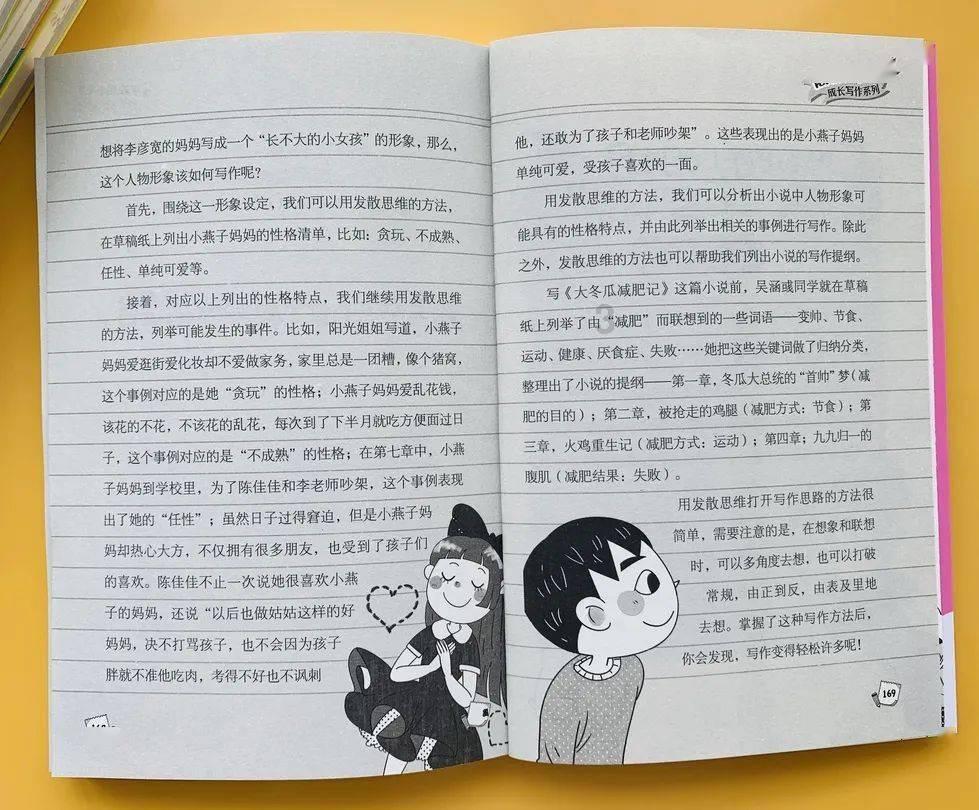 想将李彦宽的妈妈写成一个“长不大的小女孩”的形象，那么，
这个人物形象该如何写作呢？
首先，围绕这一形象设定，我们可以用发散思维的方法，
在草稿纸上列出小燕子妈妈的性格清单，比如：贪玩、不成熟、
任性、单纯可爱等。
接着，对应以上列出的性格特点，我们继续用发散思维
的方法，列举可能发生的事件。比如，阳光姐姐写道，小燕子
妈妈爱逛街爱化妆却不爱做家务，家里总是一团糟，像个猪窝，
这个事例对应的是她“贪玩”的性格；小燕子妈妈爱乱花钱，
该花的不花，不该花的乱花，每次到了下半月就吃方便面过日
子，这个事例对应的是“不成熟”的性格；在第七章中，小燕
子妈妈到学校里，为了陈佳佳和李老师吵架，这个事例表现
出了她的“任性”；虽然日子过得窘迫，但是小燕子妈
妈却热心大方，不仅拥有很多朋友，也受到了孩子们
的喜欢。陈佳佳不止一次说她很喜欢小燕
子的妈妈，还说“以后也做姑姑这样的好
妈妈，决不打骂孩子，也不会因为孩子
胖就不准他吃肉，考得不好也不讽刺
成长写作系列
他，还敢为了孩子和老师吵架”。这些表现出的是小燕子妈妈
单纯可爱，受孩子喜欢的一面。
用发散思维的方法，我们可以分析出小说中人物形象可
能具有的性格特点，并由此列举出相关的事例进行写作。除此
之外，发散思维的方法也可以帮助我们列出小说的写作提纲。
写《大冬瓜减肥记》这篇小说前，吴涵彧同学就在草稿
纸上列举了由“减肥”而联想到的一些词语——变帅、节食、
运动、健康、厌食症、失败……她把这些关键词做了归纳分类，
整理出了小说的提纲——第一章，冬瓜大总统的“首帅”梦（减
肥的目的）；第二章，被抢走的鸡腿（减肥方式：节食）；第
三章，火鸡重生记（减肥方式：运动）；第四章；九九归一的
腹肌（减肥结果：失败）。
用发散思维打开写作思路的方法很
简单，需要注意的是，在想象和联想
时，可以多角度去想，也可以打破
常规，由正到反，由表及里地
去想。掌握了这种写作方法后，
你会发现，写作变得轻松许多呢！
169